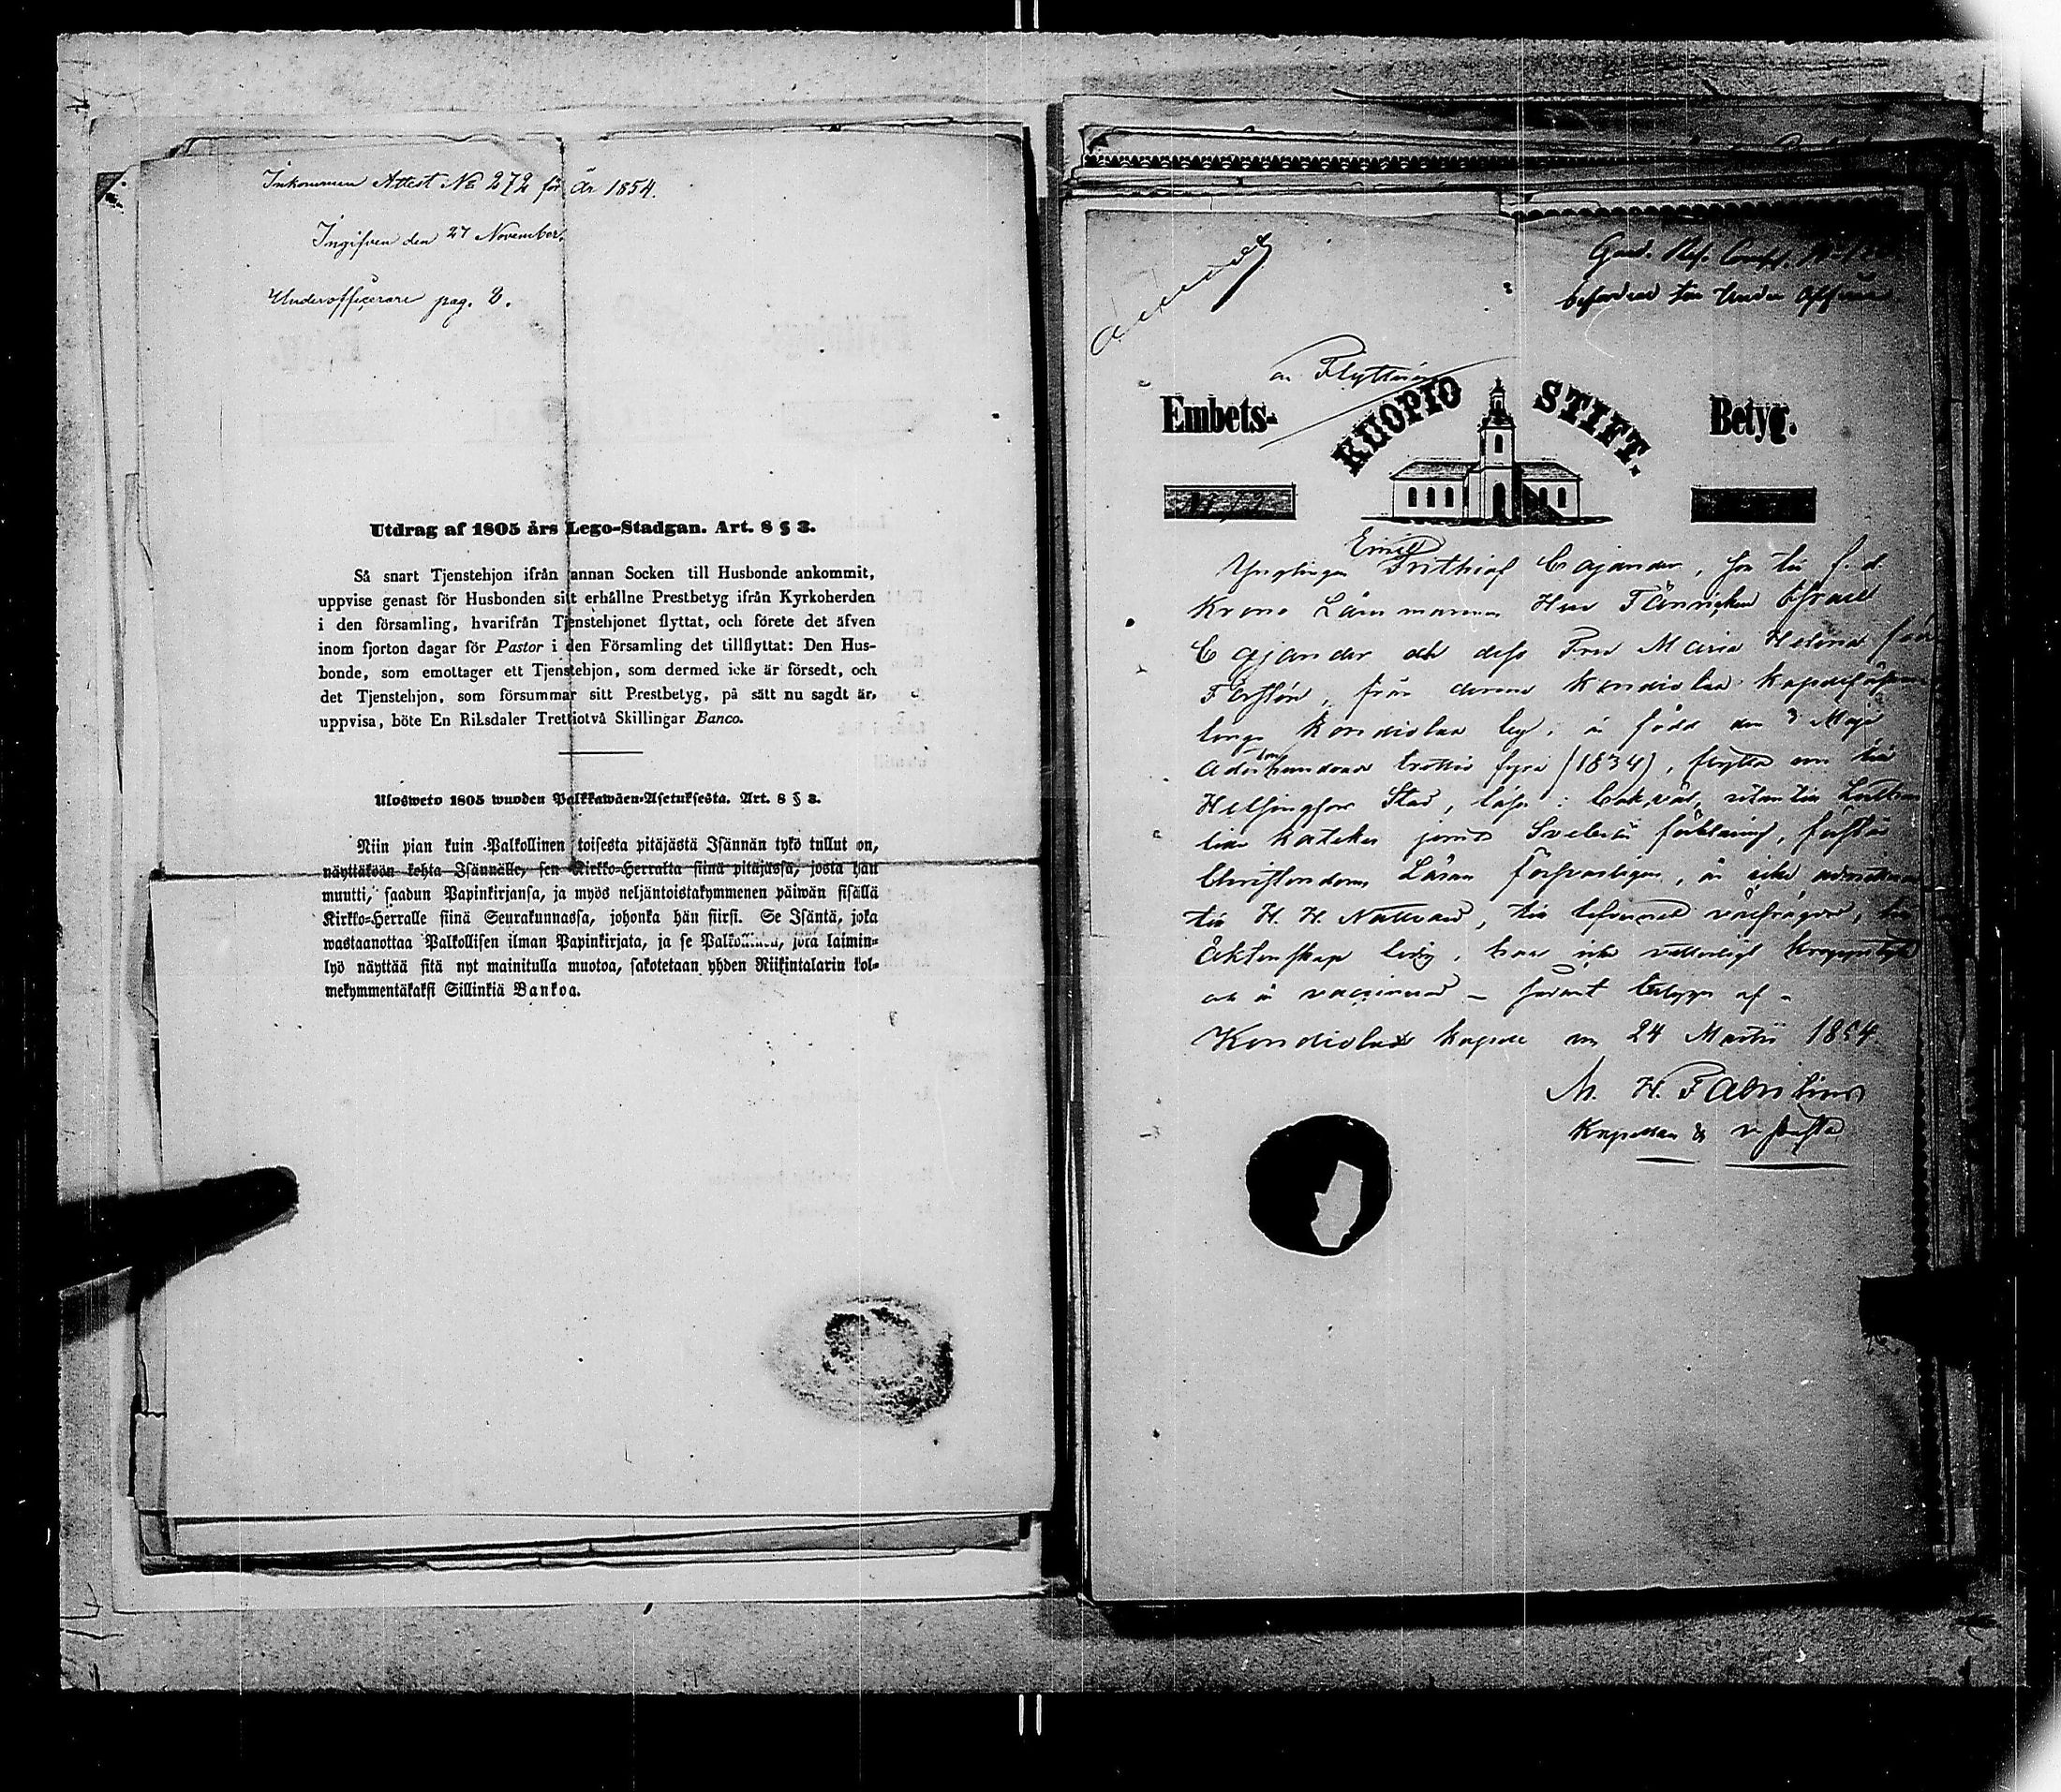 Inkommen Attest No 272 för år 1854.
Ingifven den 27 November.
Underofficerare pag. 2.
Utdrag af 1805 års Lego-Stadgan. Art. 8 § 3.
Så snart Tjenstehjon ifrån annan Socken till Husbonde ankommit,
uppvise genast för Husbonden sitt erhållne Prestbetyg ifrån Kyrkoherden
i den församling, hvarifrån Tjenstehjonet flyttat, och förete det äfven
inom fjorton dagar för Pastor i den Församling det tillflyttat: Den Hus-
bonde, som emottager ett Tjenstehjon, som dermed icke är försedt, och
det Tjenstehjon, som försummar sitt Prestbetyg, på sätt nu sagdt är,
uppvisa, böte En Riksdaler Trettiotvå Skillingar Banco.
Ulosweto 1805 wuoden Palkkawäen-Asetuksesta. Art. 8 § 3.
Niin pian kuin Palkollinen toisesta pitäjästä Isännän tykö tullut on,
näyttäköön kohta Isännälle, sen Kirkko-Herralta siinä pitäjässä, josta hän
muutti, saadun Papinkirjansa, ja myös neljäntoistakymmenen päiwän sisällä
Kirkko-Herralle siinä Seurakunnassa, johonka hän siirsi. Se Isäntä, joka
wastaanottaa Palkollisen ilman Papinkirjata, ja se Palkollinen, joka laimin-
lyö näyttää sitä nyt mainitulla muotoa, sakotetaan yhden Riikintalarin kol-
mekymmentäkaksi Sillinkiä Bankoa.
befordrad Under Officer
Flyttning
Embets- KUOPIO STIFT. Betyg.
Emil
Ynglingen Frithiof Cajander, son till f. d.
Krono Länsmannen Herr Fänricken
Cajander och dess Fru Maria Helena
från denna Kondiolax
Kondiolax by, är född den 3 Maji
Adertonhundrade trettio fyra (1834), flyttar nu till
Helsingfors Stad, läser i bok väl, utan till
katekes jemte Svebelii förklaring, förstår
Christendoms Läran försvarligen, är icke admitterad
till H. H. Nattvard, till lefvernet välfrägdad, till
Äktenskap ledig, har icke
och är vaccinerad - betygar af -
Kondiolax kapell den 24 Martii 1854.
M. H. Fabritius
Kapellan &